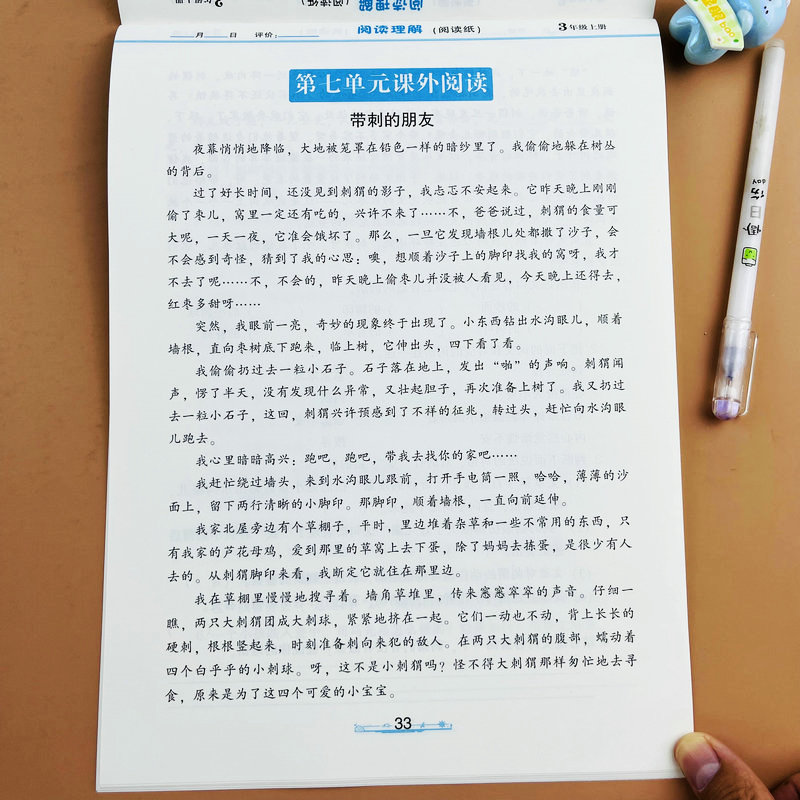 阅读理解 (阅读纸)
月 日 评价: 阅读理解 (阅读纸) 3年级上册
第七单元课外阅读
带刺的朋友
夜幕悄悄地降临，大地被笼罩在铅色一样的暗纱里了。我偷偷地躲在树丛
的背后。
过了好长时间，还没见到刺猬的影子，我忐忑不安起来。它昨天晚上刚刚
偷了枣儿，窝里一定还有吃的，兴许不来了……不，爸爸说过，刺猬的食量可
大呢，一天一夜，它准会饿坏了。那么，一旦它发现墙根儿处都撒了沙子，会
不会感到奇怪，猜到了我的心思：噢，想顺着沙子上的脚印找我的窝呀，我才
不去了呢……不，不会的，昨天晚上偷枣儿并没被人看见，今天晚上还得去，
红枣多甜呀……
突然，我眼前一亮，奇妙的现象终于出现了。小东西钻出水沟眼儿，顺着
墙根，直向枣树底下跑来，临上树，它伸出头，四下看了看。
我偷偷扔过去一粒小石子。石子落在地上，发出“啪”的声响。刺猬闻
声，愣了半天，没有发现什么异常，又壮起胆子，再次准备上树了。我又扔过
去一粒小石子，这回，刺猬兴许预感到了不祥的征兆，转过头，赶忙向水沟眼
儿跑去。
我心里暗暗高兴：跑吧，跑吧，带我去找你的家吧……
我赶忙绕过墙头，来到水沟眼儿跟前，打开手电筒一照，哈哈，薄薄的沙
面上，留下两行清晰的小脚印。那脚印，顺着墙根，一直向前延伸。
我家北屋旁边有个草棚子，平时，里边堆着杂草和一些不常用的东西，只
有我家的芦花母鸡，爱到那里的草窝上去下蛋，除了妈妈去拣蛋，是很少有人
去的。从刺猬脚印来看，我断定它就住在那里边。
我在草棚里慢慢地搜寻着。墙角草堆里，传来窸窸窣窣的声音。仔细一
瞧，两只大刺猬团成大刺球，紧紧地挤在一起。它们一动也不动，背上长长的
硬刺，根根竖起来，时刻准备刺向来犯的敌人。在两只大刺猬的腹部，蠕动着
四个白乎乎的小刺球。呀，这不是小刺猬吗？怪不得大刺猬那样匆忙地去寻
食，原来是为了这四个可爱的小宝宝。
33